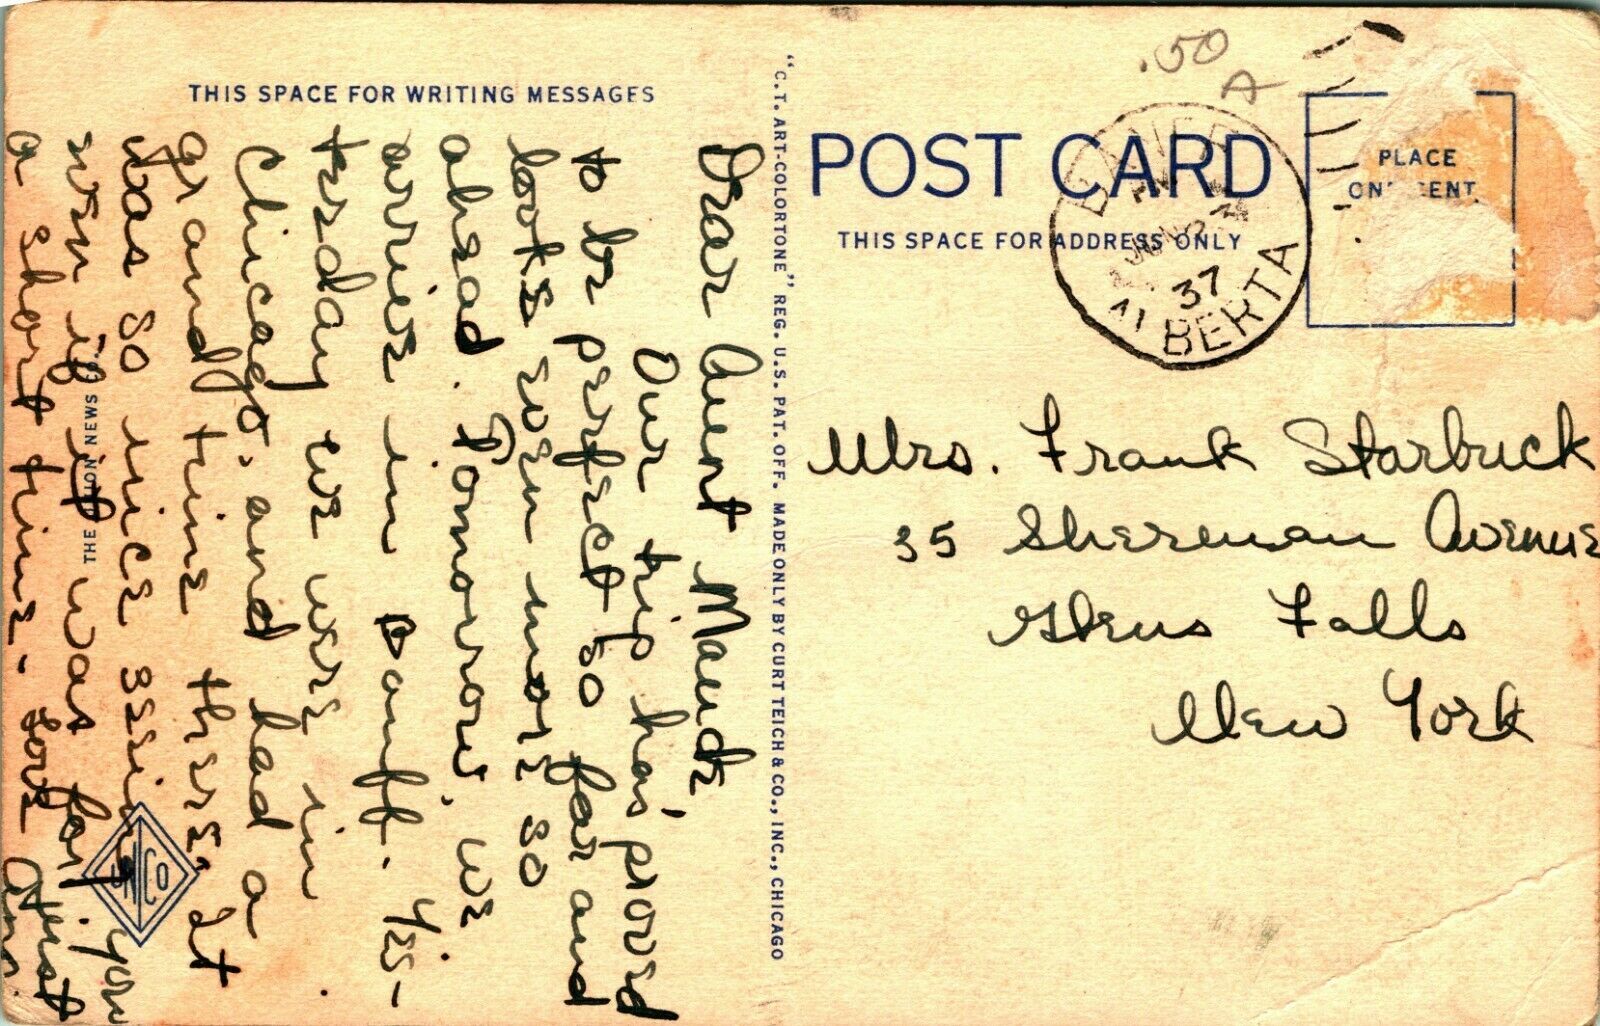 THIS SPACE FOR WRITING MESSAGES
Dear Aunt Maude,
Our trip has proved
to be perfect so far and
looks even more so
ahead. Tomorrow we
arrive in Banff. Yes-
terday we were in
Chicago and had a
grand time there. It
was so nice seeing you
even if it was for just
a short time. Love
Ann.
THE UNION NEWS CO.
UNCO
"C.T. ART-COLORTONE" REG. U.S. PAT. OFF. MADE ONLY BY CURT TEICH & CO., INC., CHICAGO
.50
A
POST CARD
THIS SPACE FOR ADDRESS ONLY
BANFF
PM
JUN
37
ALBERTA
PLACE
ONE CENT
Mrs. Frank Starbuck
35 Sherman Avenue
Glens Falls
New York